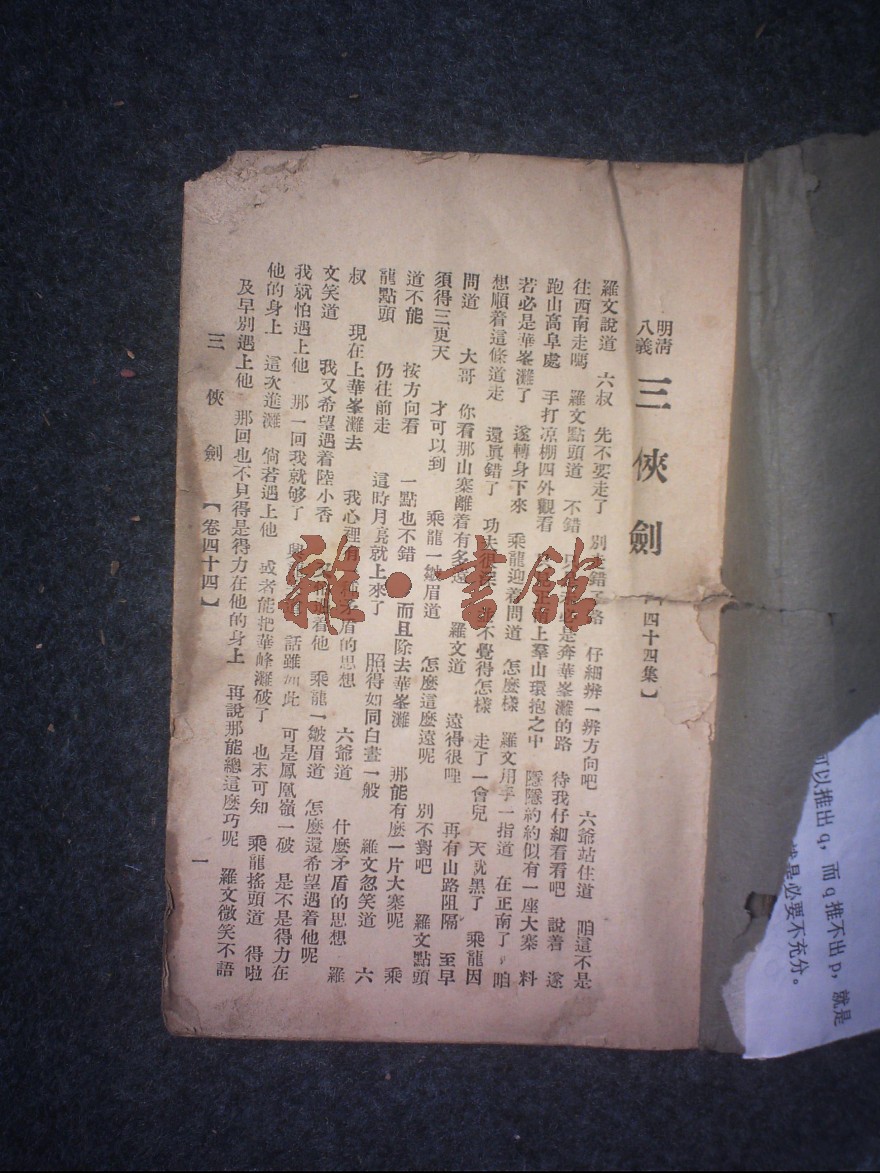 明清
八義
三俠劍
【四十四集】
羅文說道 六叔 先不要走了 別走錯了路 仔細辨一辨方向吧 六爺站住道 咱這不是
往西南走嗎 羅文點頭道 不錯 是奔華峯灘的路 待我仔細看看吧 說着 遂
跑山高阜處 手打凉棚四外觀看 上羣山環抱之中 隱隱約約似有一座大寨 料
若必是華峯灘了 遂轉身下來 乘龍迎着問道 怎麽樣 羅文用手一指道 在正南了 咱
想順着這條道走 還眞錯了 功夫很 不覺得怎樣 走了一會兒 天就黑了 乘龍因
問道 大哥 你看那山寨離着有多遠 羅文道 遠得很哩 再有山路阻隔 至早
須得三更天 才可以到 乘龍一皺眉道 怎麽這麽遠呢 別不對吧 羅文點頭
道不能 按方向看 一點也不錯 而且除去華峯灘 那能有麽一片大寨呢 乘
龍點頭 仍往前走 這時月亮就上來了 照得如同白晝一般 羅文忽笑道 六
叔 現在上華峯灘去 我心裡有 矛盾的思想 六爺道 什麽矛盾的思想 羅
文笑道 我又希望遇着陸小香 遇着他 乘龍一皺眉道 怎麽還希望遇着他呢
我就怕遇上他 那一回我就够了 話雖如此 可是鳳凰嶺一破 是不是得力在
他的身上 這次進灘 倘若遇上他 或者能把華峰灘破了 也末可知 乘龍搖頭道 得啦
及早別遇上他 那回也不見得是得力在他的身上 再說那能總這麽巧呢 羅文微笑不語
三俠劍 【卷四十四】 一
雜·書館
可以推出q，而q推不出p，就是
是必要不充分。